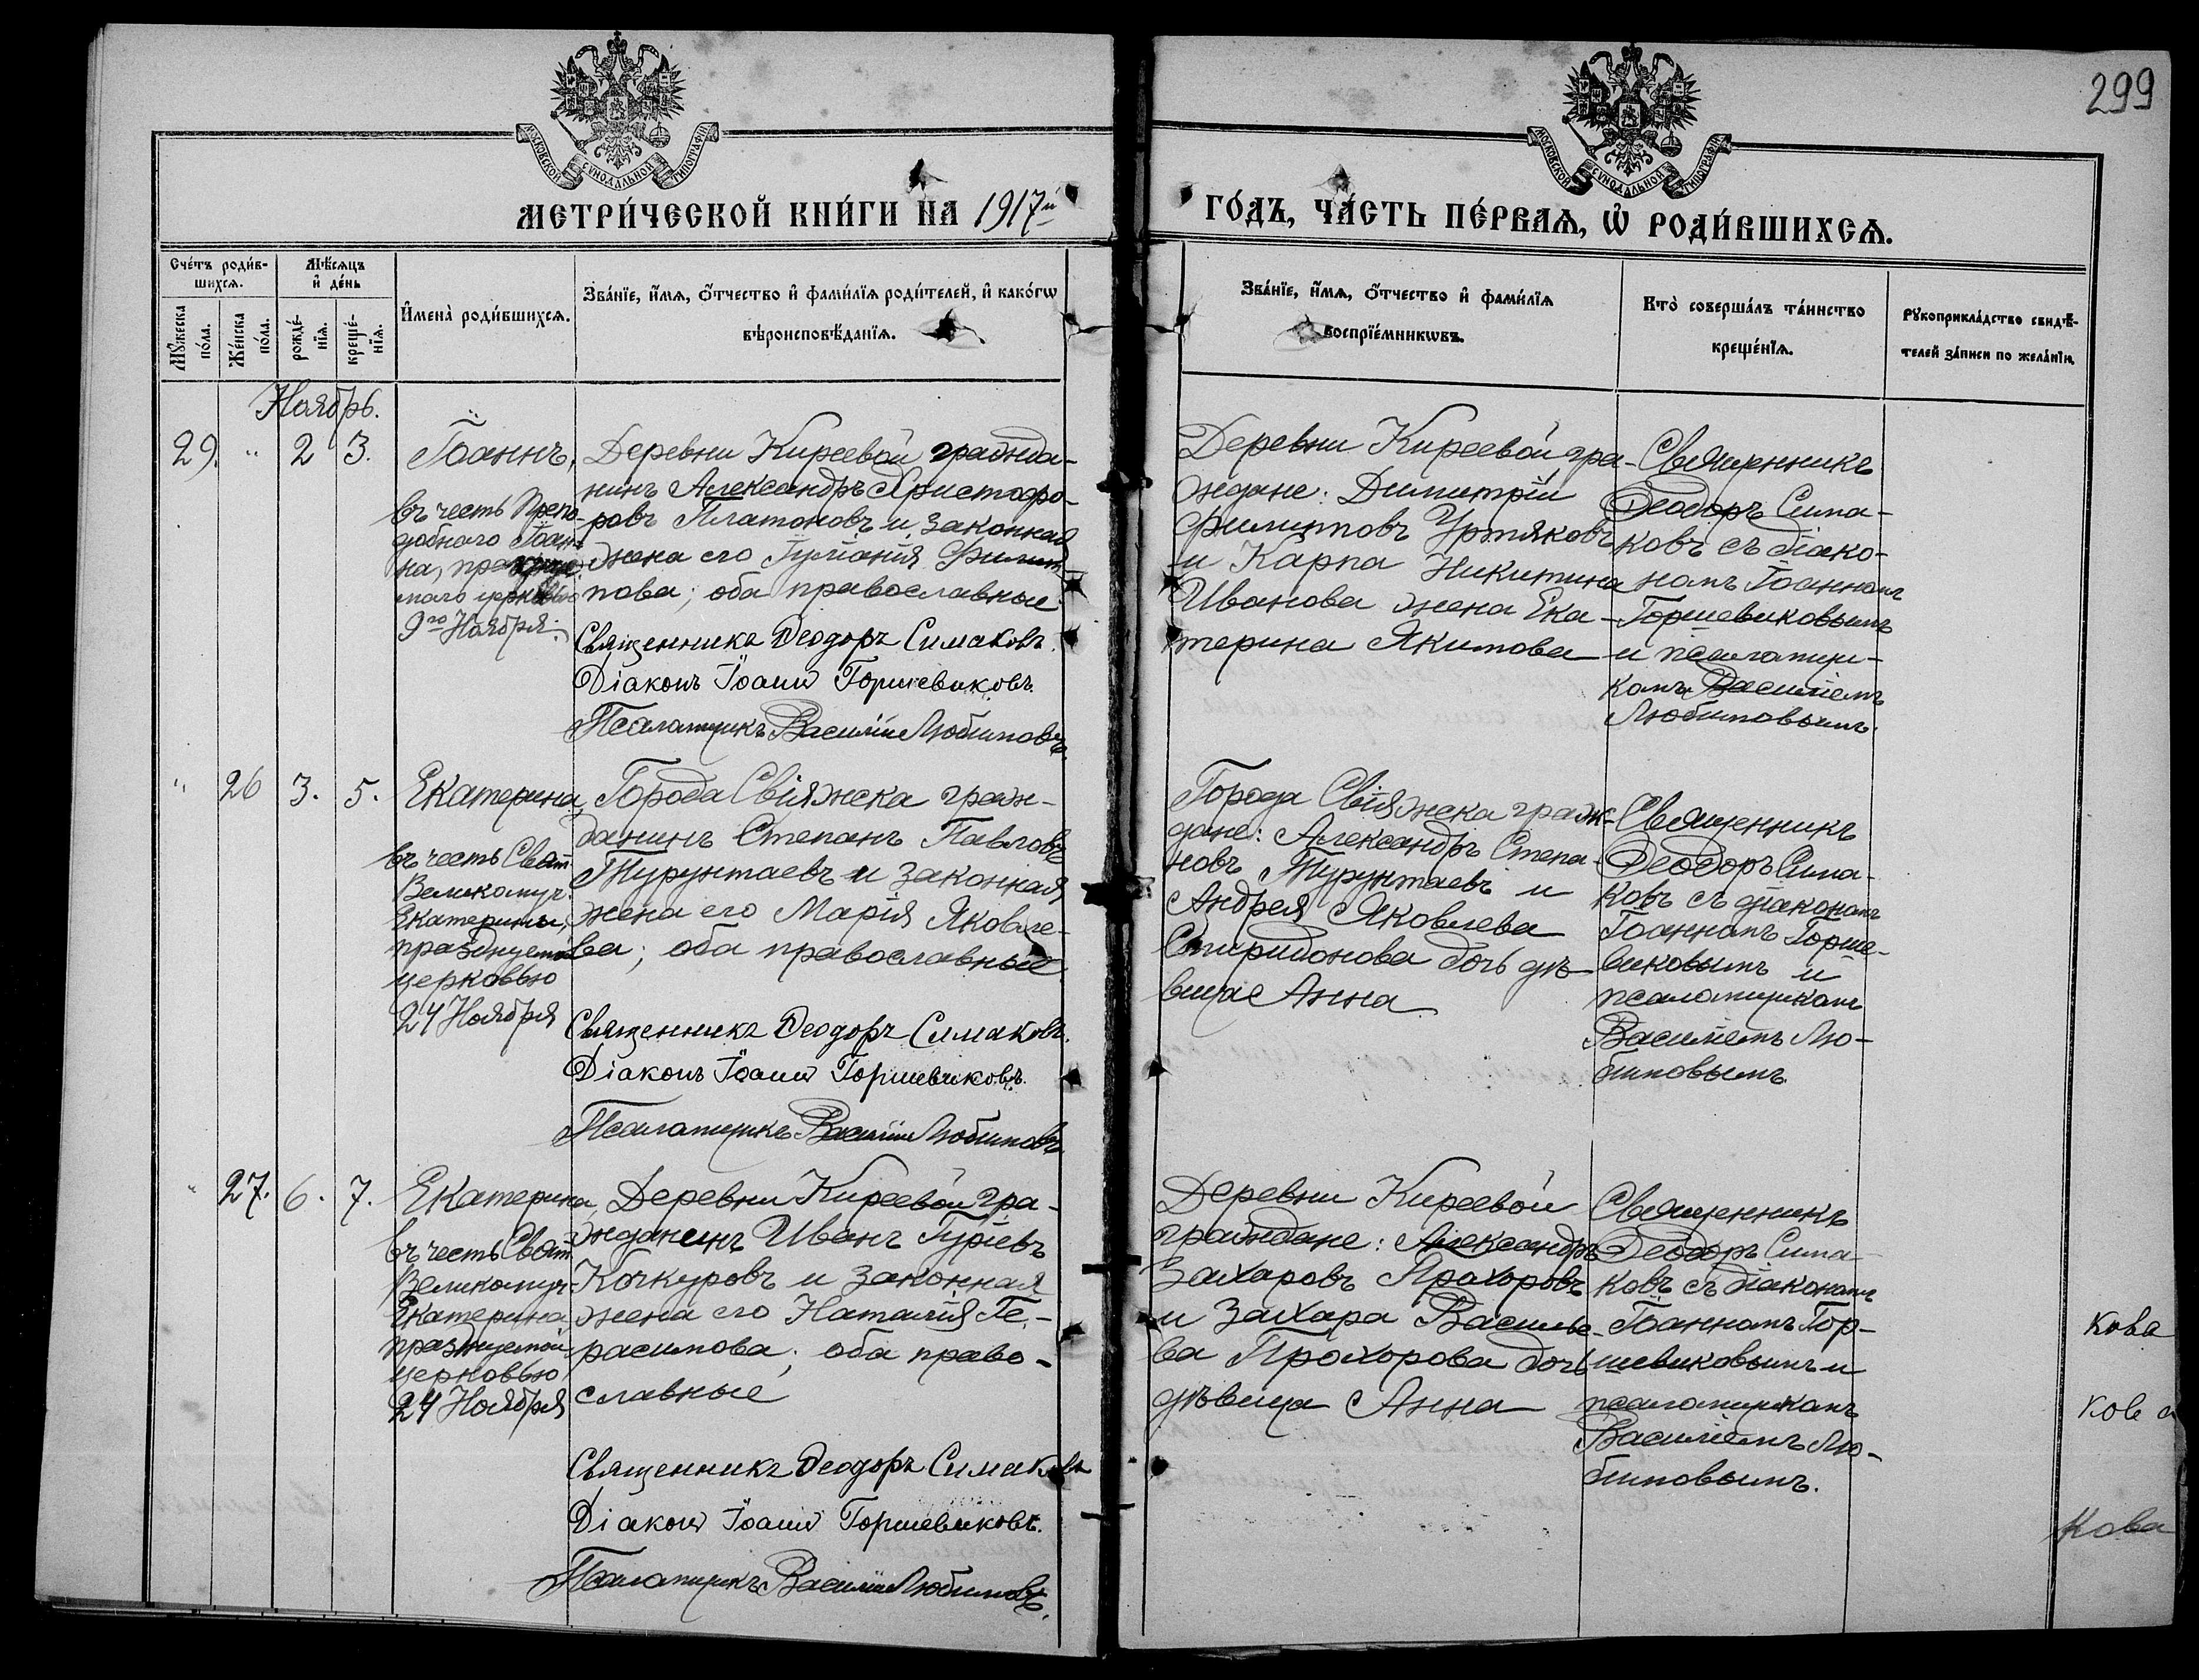 299
МОСКОВСКОЙ СѴНОДАЛЬНОЙ ТИПОГРАФІИ
МОСКОВСКОЙ СѴНОДАЛЬНОЙ ТИПОГРАФІИ
МЕТРИ́ЧЕСКОЙ КНИ́ГИ НА 1917й
ГО́ДЪ, ЧА́СТЬ ПЕ́РВАѦ, Ѡ҆ РОДИ́ВШИХСѦ.
Сче́тъ роди́в-
шихсѧ.
Мѣ́сѧцъ
и҆ де́нь
Мꙋ́жеска
по́ла.
Же́нска
по́ла.
рожде́-
нїѧ.
креще́-
нїѧ.
И҆мена̀ роди́вшихсѧ.
Зва́нїе, и҆́мѧ, ѻ҆́тчество и҆ фами́лїѧ роди́телей, и҆ како́гѡ
вѣроисповѣ́данїѧ.
Зва́нїе, и҆́мѧ, ѻ҆́тчество и҆ фами́лїѧ
воспрїе́мникѡвъ.
Кто̀ соверша́лъ та́инство
креще́нїѧ.
Рꙋкоприкла́дство свидѣ́-
телей за́писи по жела́нїю.
Ноябрь.
29. " 2 3.
Іоаннъ,
въ честь Препо-
добнаго Іоан-
на,
9го Ноября.
Деревни Киреевой гражда-
нинъ Александръ Христофо-
ровъ Платоновъ и законная
жена его Іуліанія Филип-
пова; оба православные
Священникъ Ѳеодоръ Симаковъ.
Діаконъ Іоаннъ Горшевиковъ.
Псаломщикъ Василій Любимовъ.
Деревни Киреевой гра-
ждане: Димитрій
Филипповъ Уртяковъ
и Карпа Никитина
Иванова жена Ека-
терина Якимова
Священникъ
Ѳеодоръ Сима-
ковъ съ діако-
номъ Іоанномъ
Горшевиковымъ
и псаломщи-
комъ Василіемъ
Любимовымъ.
" 26 3. 5.
Екатерина,
въ честь Свят.
Великомуч.
Екатерины,
празднуемой
церковью
24 Ноября
Города Свіяжска граж-
данинъ Степанъ Павловъ
Турунтаевъ и законная
жена его Марія Яковле-
ва; оба православные
Священникъ Ѳеодоръ Симаковъ.
Діаконъ Іоаннъ Горшевиковъ.
Псаломщикъ Василій Любимовъ
Города Свіяжска граж-
дане: Александръ Степа-
новъ Турунтаевъ и
Андрея Яковлева
Спиридонова дочь дѣ-
вица Анна
Священникъ
Ѳеодоръ Сима-
ковъ съ діакономъ
Іоанномъ Горше-
виковымъ и
псаломщикомъ
Василіемъ Лю-
бимовымъ.
" 27. 6. 7.
Екатерина,
въ честь Свят.
Великомуч.
Екатерины
празднуемой
церковью
24 Ноября
Деревни Киреевой гра-
жданинъ Иванъ Гуріевъ
Кочкуровъ и законная
жена его Наталія Ге-
расимова; оба право-
славные
Священникъ Ѳеодоръ Симаковъ
Діаконъ Іоаннъ Горшевиковъ.
Псаломщикъ Василій Любимовъ.
Деревни Киреевой
граждане: Александръ
Захаровъ Прохоровъ
и Захара Василье-
ва Прохорова дочь
дѣвица Анна
Священникъ
Ѳеодоръ Сима-
ковъ съ діакономъ
Іоанномъ Гор-
шевиковымъ и
псаломщикомъ
Василіемъ Лю-
бимовымъ.
кова
кова
кова